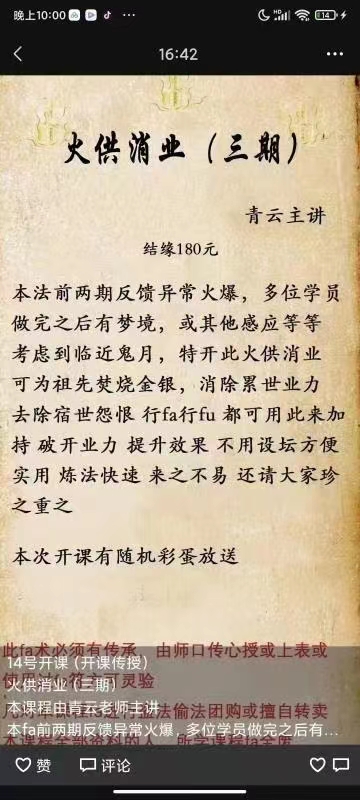 晚上10:00
14
16:42
火供消业（三期）
青云主讲
结缘180元
本法前两期反馈异常火爆，多位学员
做完之后有梦境，或其他感应等等
考虑到临近鬼月，特开此火供消业
可为祖先焚烧金银，消除累世业力
去除宿世怨恨 行fa行fu 都可用此来加
持 破开业力 提升效果 不用设坛方便
实用 炼法快速 来之不易 还请大家珍
之重之
本次开课有随机彩蛋放送
此fa术必须有传承，由师口传心授或上表或
14号开课（开课传授）
火供消业（三期）
本课程由青云老师主讲
本fa前两期反馈异常火爆，多位学员做完之后有…
赞
评论